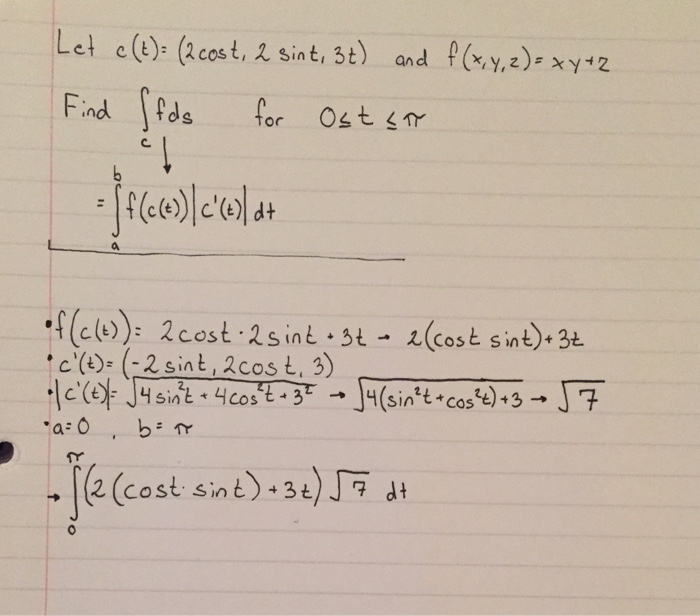 Let c(t)= (2cost, 2 sint, 3t) and f(x,y,z)= xy+z
Find ∫_c fds for 0≤t≤π
↓
= ∫_a^b f(c(t))|c'(t)| dt
•f(c(t))= 2cost·2sint + 3t → 2(cost sint)+3t
•c'(t)= (-2sint, 2cost, 3)
•|c'(t)|= √(4sin²t + 4cos²t + 3²) → √(4(sin²t+cos²t)+3) → √7
•a=0, b=π
→ ∫_0^π (2(cost·sint)+3t)√7 dt